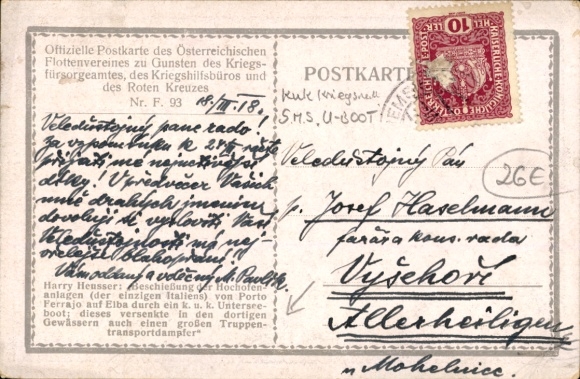 Offizielle Postkarte des Österreichischen
Flottenvereines zu Gunsten des Kriegs-
fürsorgeamtes, des Kriegshilfsbüros und
des Roten Kreuzes
Nr. F. 93
18/III. 18.
Veledůstojný pane rado
za vzpomínku k
přijati mé nejsrdečnější
díky! V předvečer Vašich
mně drahých jmenin
dovoluji si vysloviti Vaší
Veledůstojnosti mé nej-
srdečnější blahopřání!
Vám oddaný a vděčný
Harry Heusser: „Beschießung der Hochofen-
anlagen (der einzigen Italiens) von Porto
Ferrajo auf Elba durch ein k. u. k. Untersee-
boot; dieses versenkte in den dortigen
Gewässern auch einen großen Truppen-
transportdampfer“
POSTKARTE
KuK Kriegsm
S.M.S. U-BOOT
10
HELLER
KAISERLICHE KÖNIGLICHE
ÖSTERREICHISCHE POST
26€
Veledůstojný Pán
p. Josef Haselmann
farář a kons. rada
Vyšehoří
Allerheiligen
u Mohelnice.